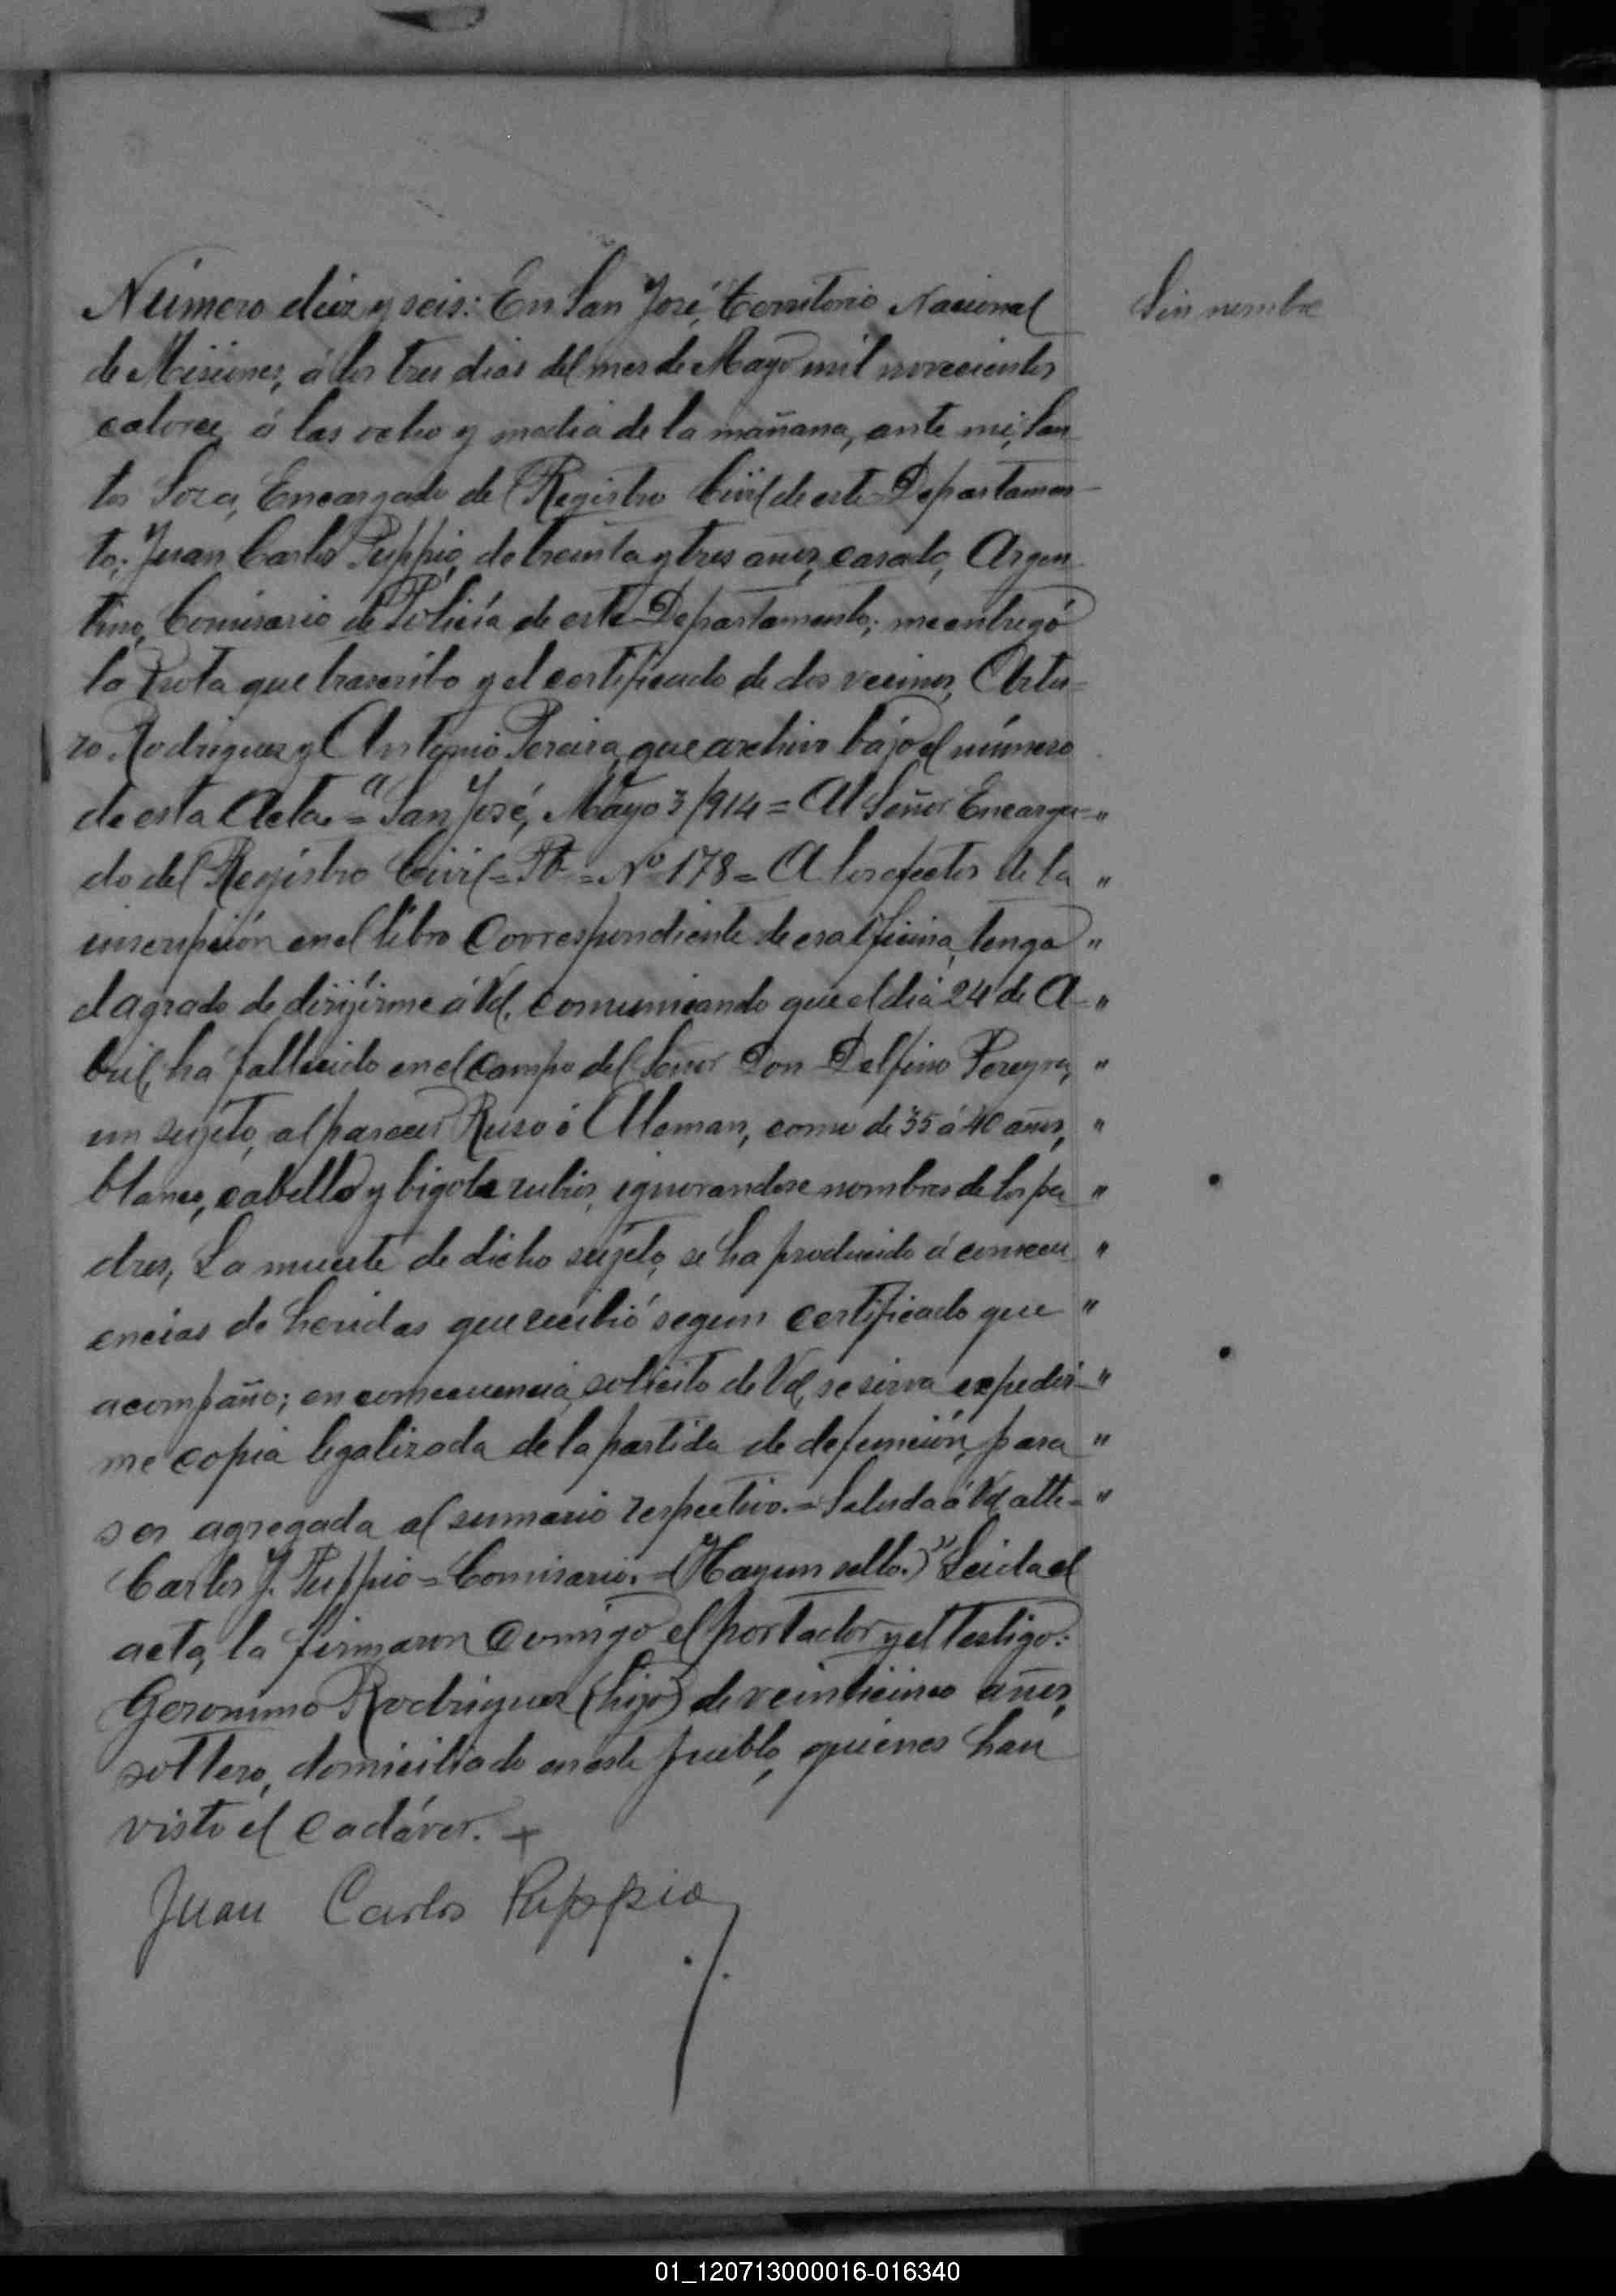 Número diez y seis: En San José, Territorio Nacional
Sin nombre
de Misiones, á los tres dias del mes de Mayo mil novecientos
catorce, á las ocho y media de la mañana, ante mi, San
tos Soza, Encargado de Registro Civil de este Departamen-
to; Juan Carlos Puppio, de treinta y tres años, casado, Argen-
tino, Comisario de Policía de este Departamento; me entregó
la nota que trascribo y el certificado de dos vecinos, Artu-
ro Rodriguez y Antonio Pereira, que archivo bajo el número
de esta Acta. = "San José, Mayo 3/914 = Al Señor Encarga- "
do del Registro Civil = Pte = Nº 178 = A los efectos de la "
inscripción en el libro Correspondiente de esa Oficina, tengo "
el agrado de dirijirme á Vd. comunicando que el dia 24 de A- "
bril, ha fallecido en el campo del Señor Don Delfino Pereyra, "
un sujeto, al parecer Ruso ó Aleman, como de 35 á 40 años, "
blanco, cabello y bigote rubios, ignorandose nombres de los pa "
dres, La muerte de dicho sujeto, se ha producido á consecu "
encias de heridas que recibió segun certificado que "
acompaño; en consecuencia, solicito de Vd, se sirva expedir- "
me copia legalizada de la partida de defunción, para "
ser agregada al sumario respectivo. = Saluda á Vd atte- "
Carlos J. Puppio = Comisario. = (Hay un sello.)" Leida el
acta, la firmaron Comigo el portador y el testigo:
Geronimo Rodriguez (hijo) de veinticinco años,
soltero, domiciliado en este pueblo, quienes han
visto el Cadáver. +
Juan Carlos Puppio
01_120713000016-016340